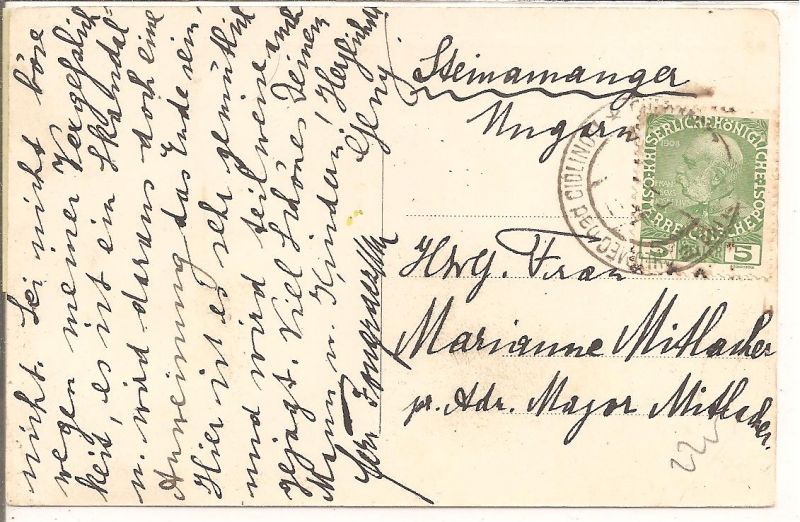 nicht. Sei nicht böse
wegen meiner Vergesslich
keit, es ist ein Skandal
u. wird daraus doch eine
Anweinung das Ende sein.
Hier ist es sehr gemütlich
und wird teilweise auch
gejagt. Viel Schönes Deinem
Mann u. Kindern! Herzlichst
Geny
Steinamanger
Ungarn
KAISERLICHE KÖNIGLICHE ÖSTERREICHISCHE POST
1908
5 5
NAD CIDLINOU
HWg. Frau
Marianne Mitlacher
pr. Adr. Major Mitlacher.
22